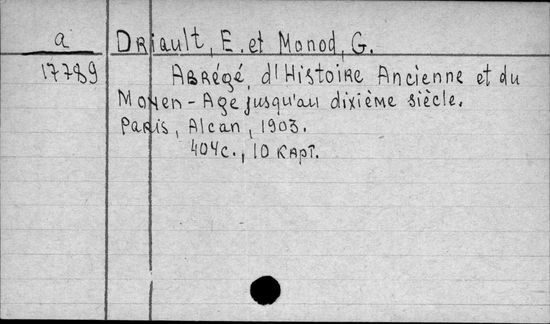 a
Driault, E. et Monod, G.
17789
Abrégé d'Histoire Ancienne et du
Moyen-Age jusqu'au dixième siècle.
Paris, Alcan, 1903.
404c., 10 карт.